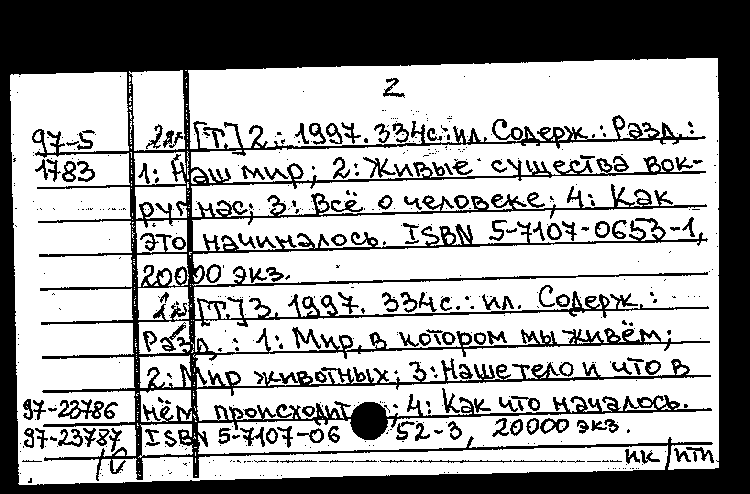 2
97-5 2й [Т.] 2.: 1997. 334с.:ил. Содерж.: Разд.:
1783 1: Наш мир; 2: Живые существа вок-
руг нас; 3: Всё о человеке; 4: Как
это начиналось. ISBN 5-7107-0653-1,
20000 экз.
[Т.] 3. 1997. 334с.: ил. Содерж.:
Разд.: 1: Мир, в котором мы живём;
2: Мир животных; 3: Наше тело и что в
97-23786 нём происходит; 4: Как что началось.
97-23787 ISBN 5-7107-0652-3, 20000 экз.
10 пк/птп